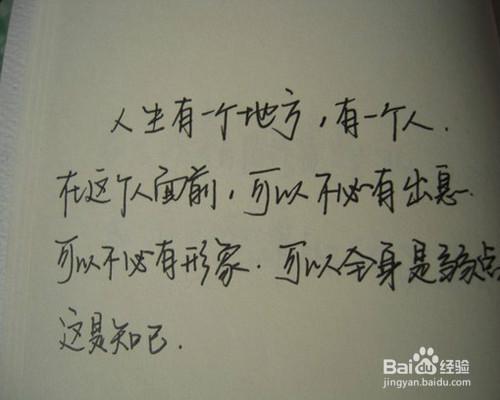 人生有一个地方，有一个人.
在这个人面前，可以不必有出息.
可以不必有形象.可以全身是弱点
这是知己.
Baidu经验
jingyan.baidu.com